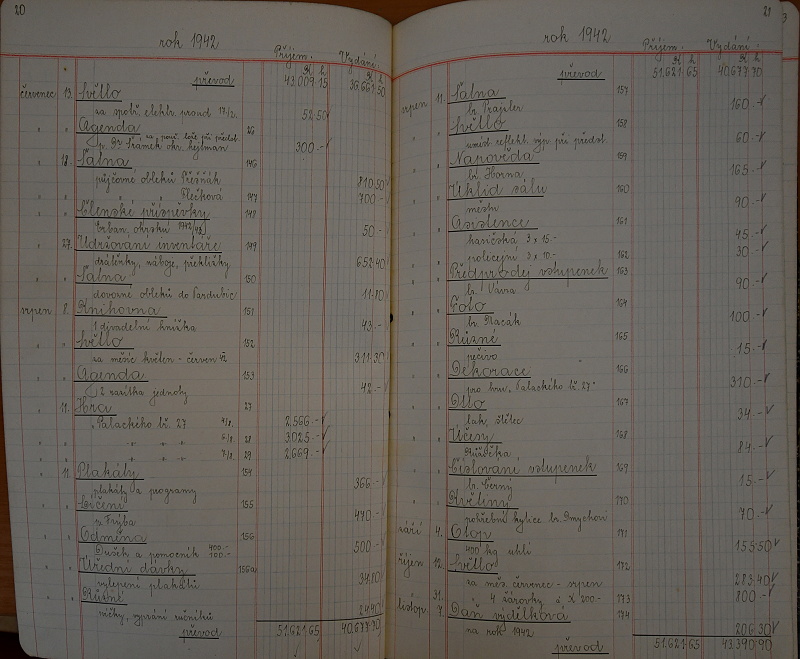 20
rok 1942
Příjem: Vydání:
K h K h
převod 43.009.15 36.661.50
červenec 13. Světlo
za spotř. elektr. proud 52.50
" " Agenda 26
p. Dr Šrámek okr. hejtman 300.-
" 18. Šatna 146
půjčovné obleků 810.50
" " 147 700.-
" " Členské příspěvky 148
Urban, okrsku 50.-
" 27. Udržování inventáře 149
drátěnky, náboje, překližky 652.40
" " Šatna 150
dovozné obleků do Pardubic 11.80
srpen 8. Knihovna 151
1 divadelní knížka 43.-
" " Světlo 152
za měsíc květen - červen 42 311.30
" " Agenda 153
2 razítka jednoty 42.-
" 11. Hra 27
"Palackého tř. 27 4/8. 2.566.-
" " " 5/8. 28 3.025.-
" " " 29 2.669.-
" 11. Plakáty 154
plakáty a programy 366.-
" " Cvičení 155
p. Fryba 470.-
" " Odměna 156
Dušek a pomocník 400.- 100.- 500.-
" " Úřední dávky 156a
vylepení plakátů 34.80
" " Různé
praní ručníků 24.40
převod 51.621.65 40.677.90
21
rok 1942
Příjem: Vydání:
K h K h
převod 51.621.65 40.677.90
srpen 11. Šatna 157
br. 160.-
" " Světlo 158
umíst. reflekt. při předst. 60.-
" " Nápověda 159
165.-
" " Úklid sálu 160
městu 90.-
" " Asistence 161
hasičská 3 x 15.- 45.-
" " policejní 3 x 10.- 162 30.-
" " Předprodej vstupenek 163
br. Vávra 90.-
" " Foto 164
br. Macák 100.-
" " Různé 165
pečivo 15.-
" " Dekorace 166
pro hru "Palackého tř. 27" 310.-
" " Otto 167
lak, štětec 34.-
" " Účesy 168
Růžička 84.-
" " Číslování vstupenek 169
br. Černý 15.-
" " Květiny 170
pohřební kytice br. 70.-
září 4. Otop 171
400 kg uhlí 155.50
říjen 12. Světlo 172
za měs. červenec - srpen 283.40
" 31. 4 žárovky á K 200.- 173 800.-
listop. 7. Daň výdělková 174
na rok 1942 206.30
převod 51.621.65 43.390.90